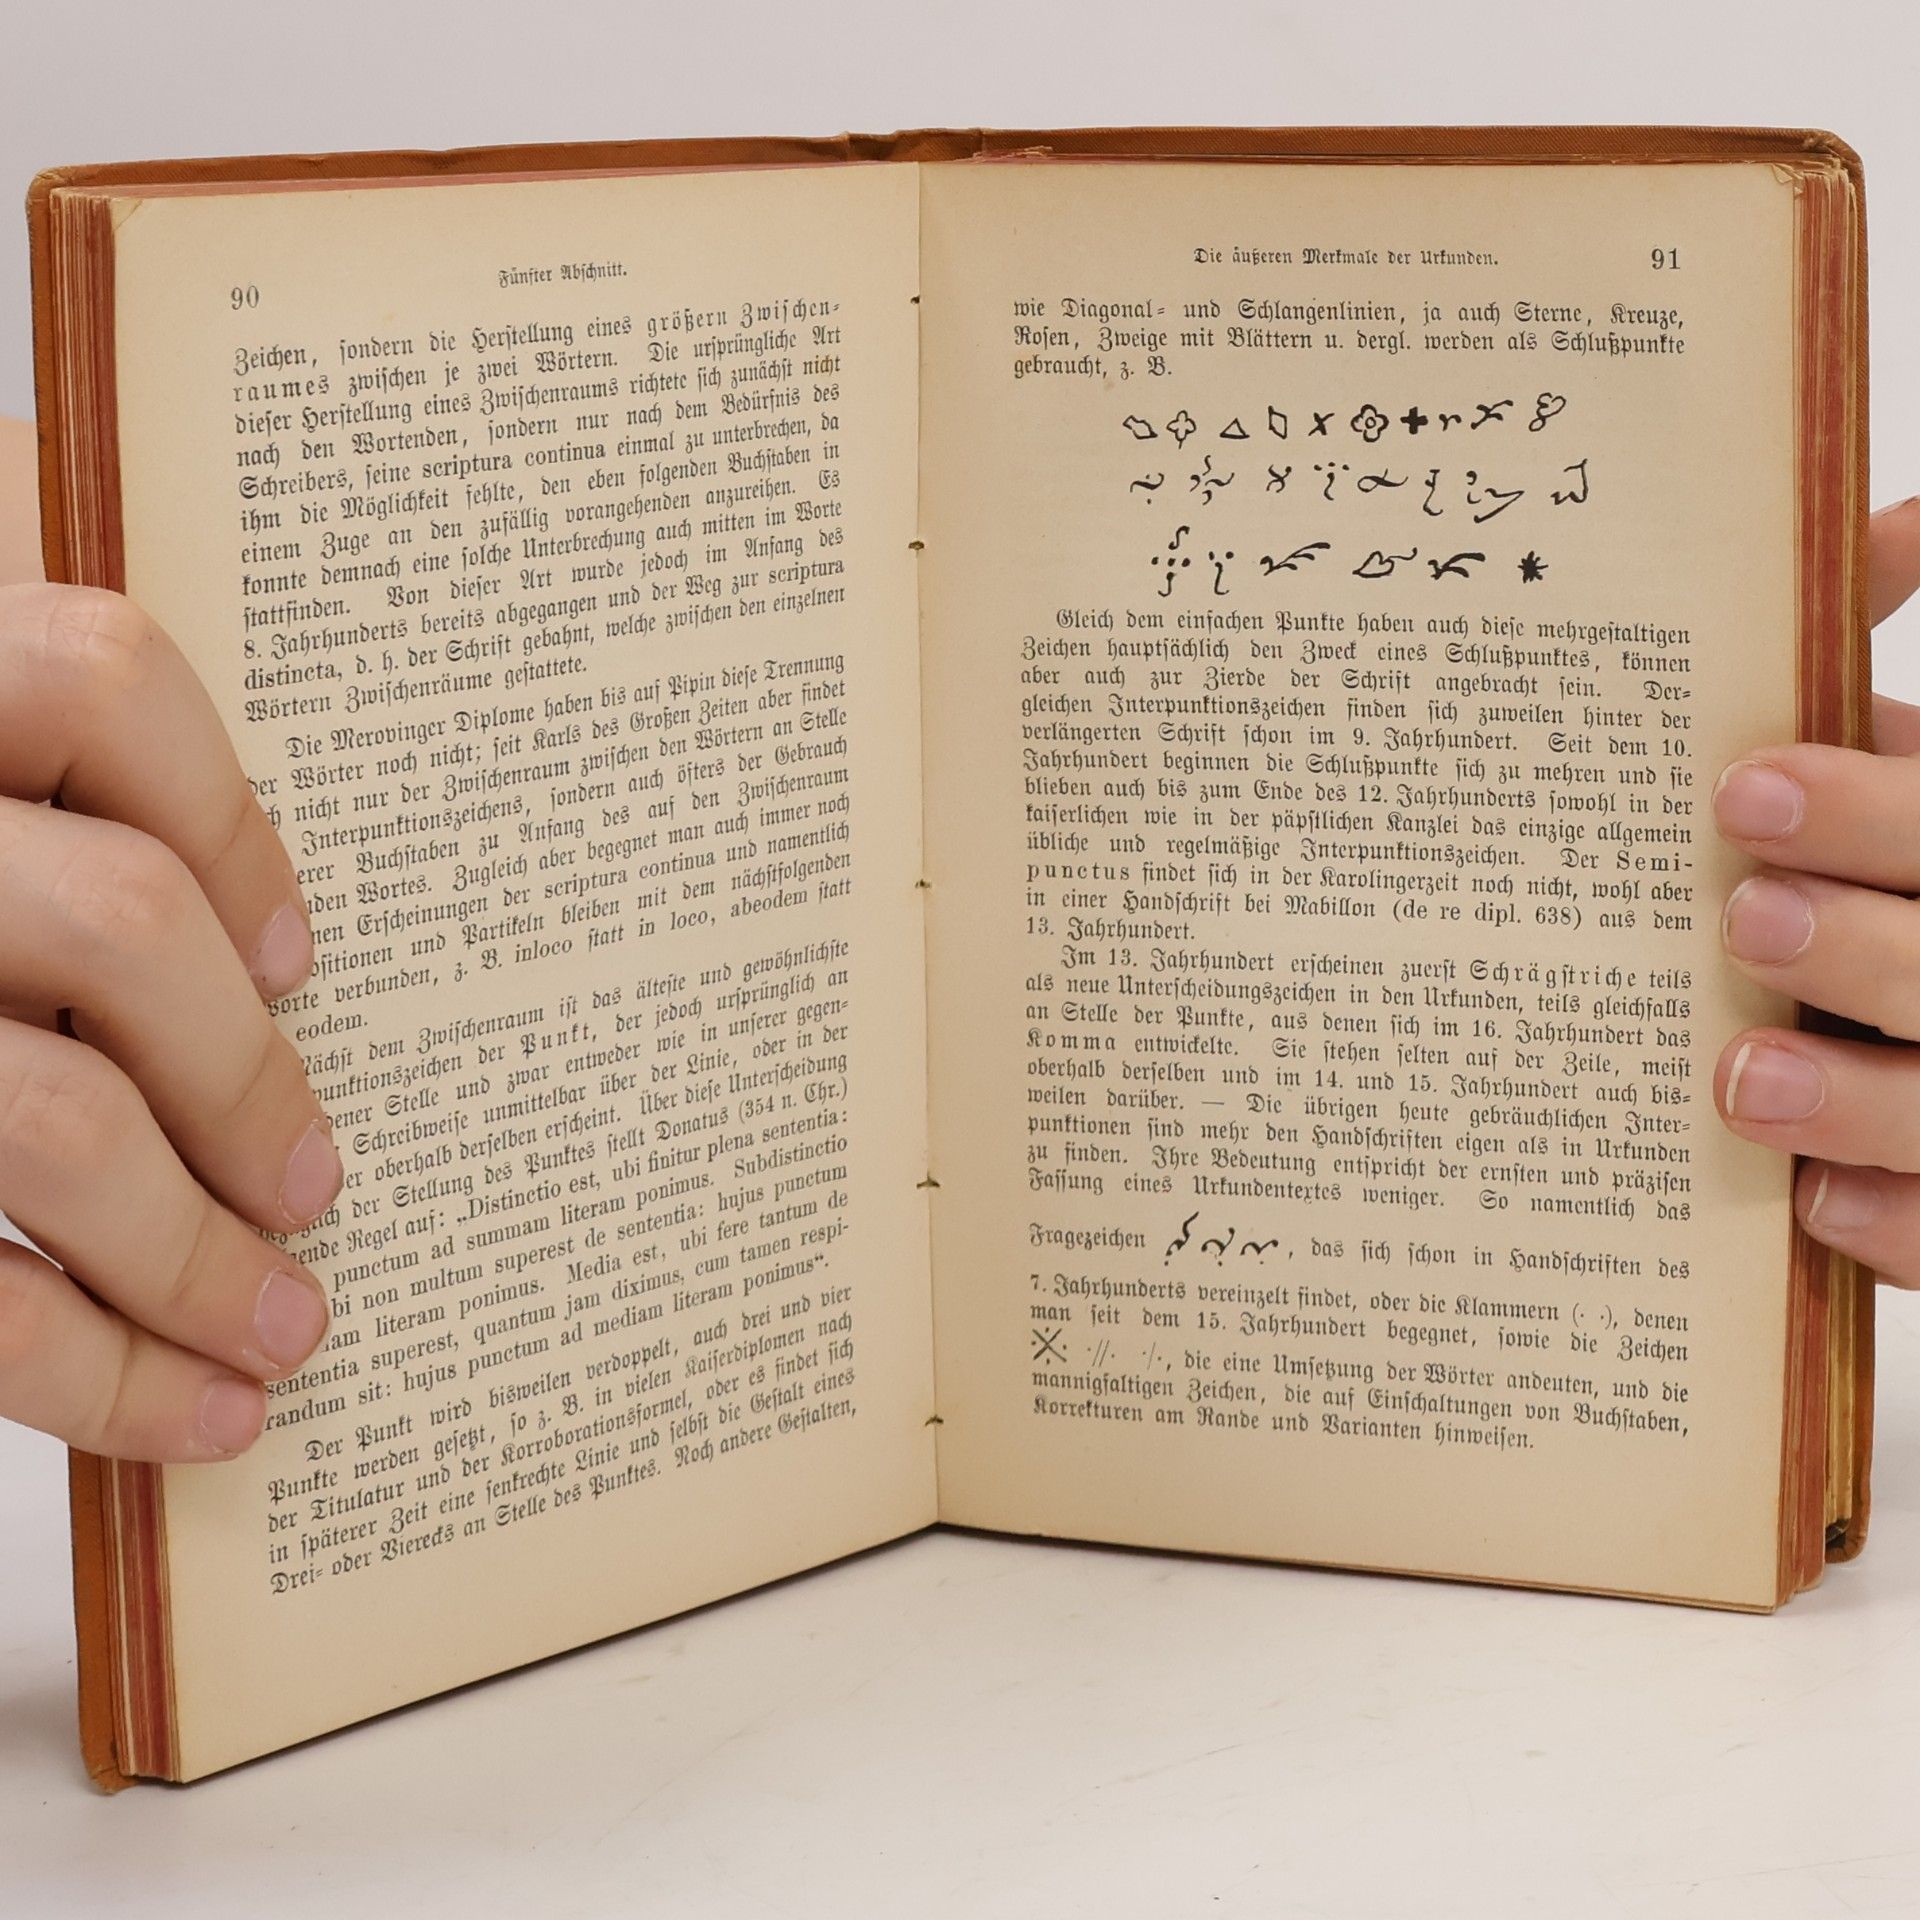 90
Fünfter Abschnitt.
Zeichen, sondern die Herstellung eines größern Zwischen-
raumes zwischen je zwei Wörtern. Die ursprüngliche Art
dieser Herstellung eines Zwischenraums richtete sich zunächst nicht
nach den Wortenden, sondern nur nach dem Bedürfnis des
Schreibers, seine scriptura continua einmal zu unterbrechen, da
ihm die Möglichkeit fehlte, den eben folgenden Buchstaben in
einem Zuge an den zufällig vorangehenden anzureihen. Es
konnte demnach eine solche Unterbrechung auch mitten im Worte
stattfinden. Von dieser Art wurde jedoch im Anfang des
8. Jahrhunderts bereits abgegangen und der Weg zur scriptura
distincta, d. h. der Schrift gebahnt, welche zwischen den einzelnen
Wörtern Zwischenräume gestattete.
Die Merovinger Diplome haben bis auf Pipin diese Trennung
der Wörter noch nicht; seit Karls des Großen Zeiten aber findet
nicht nur der Zwischenraum zwischen den Wörtern an Stelle
Interpunktionszeichens, sondern auch öfters der Gebrauch
erer Buchstaben zu Anfang des auf den Zwischenraum
nden Wortes. Zugleich aber begegnet man auch immer noch
nen Erscheinungen der scriptura continua und namentlich
ositionen und Partikeln bleiben mit dem nächstfolgenden
Worte verbunden, z. B. inloco statt in loco, abeodem statt
eodem.
Nächst dem Zwischenraum ist das älteste und gewöhnlichste
punktionszeichen der Punkt, der jedoch ursprünglich an
dener Stelle und zwar entweder wie in unserer gegen-
Schreibweise unmittelbar über der Linie, oder in der
der oberhalb derselben erscheint. Über diese Unterscheidung
der Stellung des Punktes stellt Donatus (354 n. Chr.)
gende Regel auf: „Distinctio est, ubi finitur plena sententia:
punctum ad summam literam ponimus. Subdistinctio
bi non multum superest de sententia: hujus punctum
am literam ponimus. Media est, ubi fere tantum de
sententia superest, quantum jam diximus, cum tamen respi-
randum sit: hujus punctum ad mediam literam ponimus“.
Der Punkt wird bisweilen verdoppelt, auch drei und vier
Punkte werden gesetzt, so z. B. in vielen Kaiserdiplomen nach
der Titulatur und der Korroborationsformel, oder es findet sich
in späterer Zeit eine senkrechte Linie und selbst die Gestalt eines
Drei- oder Vierecks an Stelle des Punktes. Noch andere Gestalten,
Die äußeren Merkmale der Urkunden.
91
wie Diagonal- und Schlangenlinien, ja auch Sterne, Kreuze,
Rosen, Zweige mit Blättern u. dergl. werden als Schlußpunkte
gebraucht, z. B.
Gleich dem einfachen Punkte haben auch diese mehrgestaltigen
Zeichen hauptsächlich den Zweck eines Schlußpunktes, können
aber auch zur Zierde der Schrift angebracht sein. Der-
gleichen Interpunktionszeichen finden sich zuweilen hinter der
verlängerten Schrift schon im 9. Jahrhundert. Seit dem 10.
Jahrhundert beginnen die Schlußpunkte sich zu mehren und sie
blieben auch bis zum Ende des 12. Jahrhunderts sowohl in der
kaiserlichen wie in der päpstlichen Kanzlei das einzige allgemein
übliche und regelmäßige Interpunktionszeichen. Der Semi-
punctus findet sich in der Karolingerzeit noch nicht, wohl aber
in einer Handschrift bei Mabillon (de re dipl. 638) aus dem
13. Jahrhundert.
Im 13. Jahrhundert erscheinen zuerst Schrägstriche teils
als neue Unterscheidungszeichen in den Urkunden, teils gleichfalls
an Stelle der Punkte, aus denen sich im 16. Jahrhundert das
Komma entwickelte. Sie stehen selten auf der Zeile, meist
oberhalb derselben und im 14. und 15. Jahrhundert auch bis-
weilen darüber. — Die übrigen heute gebräuchlichen Inter-
punktionen sind mehr den Handschriften eigen als in Urkunden
zu finden. Ihre Bedeutung entspricht der ernsten und präzisen
Fassung eines Urkundentextes weniger. So namentlich das
Fragezeichen , das sich schon in Handschriften des
7. Jahrhunderts vereinzelt findet, oder die Klammern (· ·), denen
man seit dem 15. Jahrhundert begegnet, sowie die Zeichen
※ ·//· ·/·, die eine Umsetzung der Wörter andeuten, und die
mannigfaltigen Zeichen, die auf Einschaltungen von Buchstaben,
Korrekturen am Rande und Varianten hinweisen.